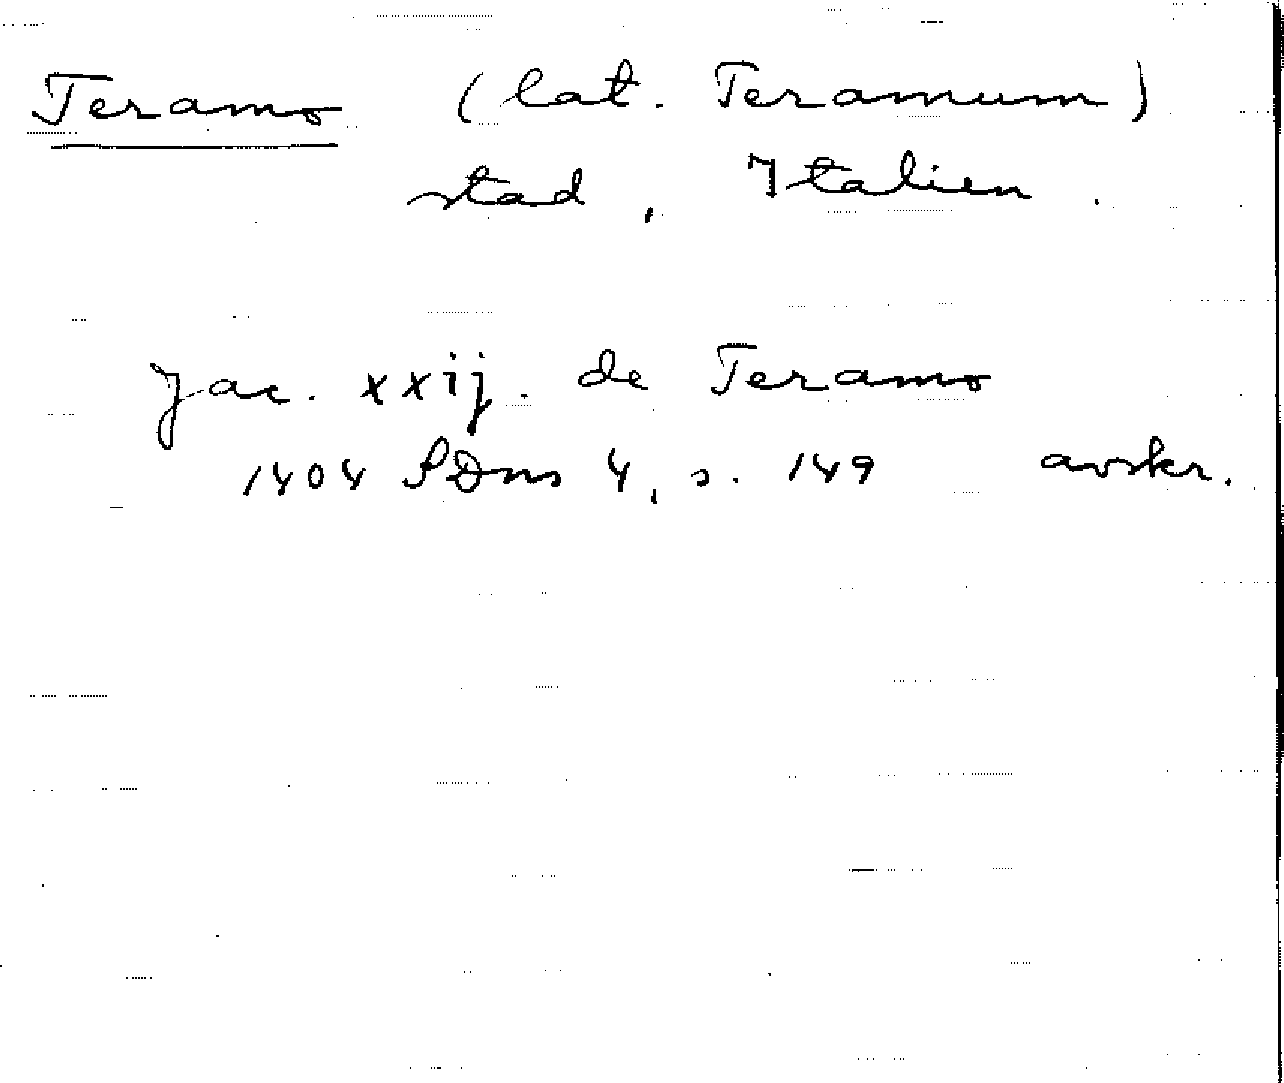 Teramo (lat. Teramum)
stad, Italien.
Jac. xxij. de Teramo
1404 SDns 4, s. 149 avskr.